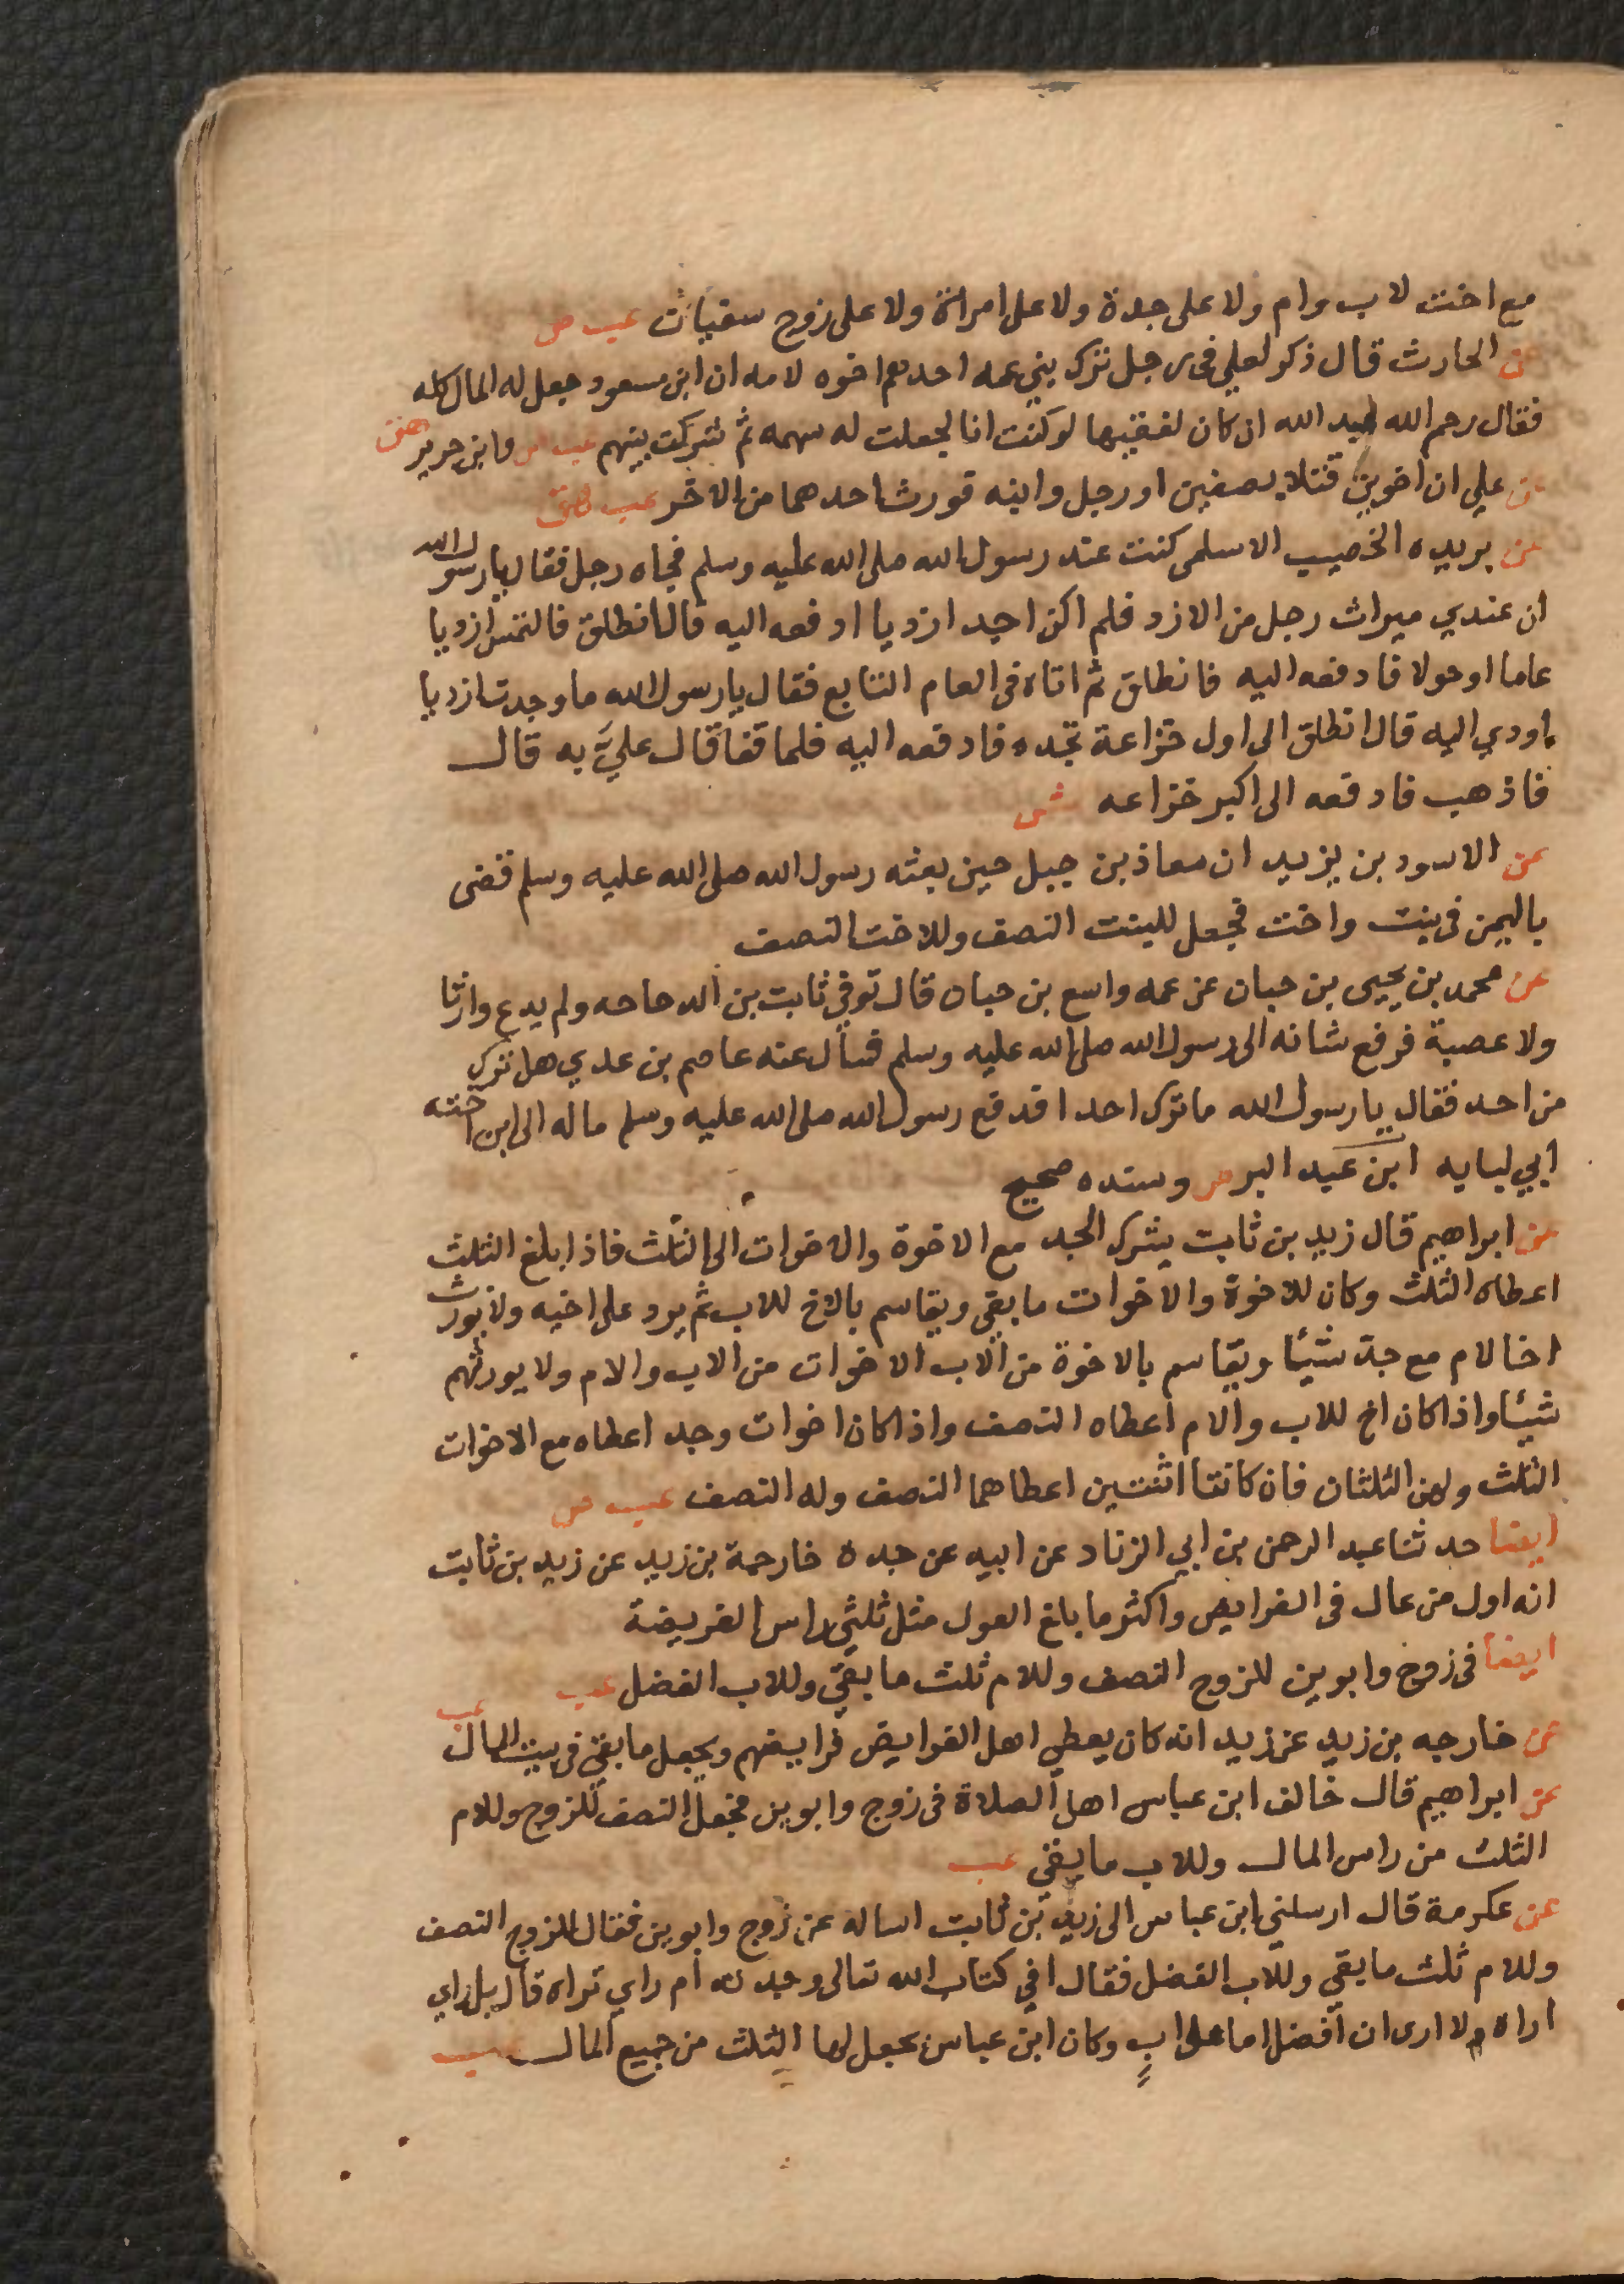 مع اخت لاب وام ولا على جدة ولا على امراة ولا على زوج سفيان عب ص
عن الحارث قال ذكر لعلي في رجل ترك بني عمه احدهم اخوه لامه ان ابن مسعود جعل له المال كله
فقال رحم الله عبد الله ان كان لفقيها لو كنت انا لجعلت له سهمه ثم شركت بينهم عب ص وابن جرير هق
عن علي ان اخوين قتلا بصفين او رجل وابنه فورث احدهما من الاخر عب هق
عن بريده الخصيب الاسلمى كنت عند رسول الله صلى الله عليه وسلم فجاه رجل فقال يا رسول الله
ان عندي ميراث رجل من الازد فلم اكن اجد ازديا ادفعه اليه قال انطلق فالتمس ازديا
عاما او حولا فادفعه اليه فانطلق ثم اتاه في العام التابع فقال يا رسول الله ما وجدت ازديا
اودي اليه قال انطلق الى اول خزاعة تجده فادفعه اليه فلما قفا قال علي به قال
فاذهب فادفعه الى اكبر خزاعه ش
عن الاسود بن يزيد ان معاذ بن جبل حين بعثه رسول الله صلى الله عليه وسلم قضى
باليمن في بنت واخت فجعل للبنت النصف وللاخت النصف
عن محمد بن يحيى بن حبان عن عمه واسع بن حبان قال توفي ثابت بن الدحاحه ولم يدع وارثا
ولا عصبة فرفع شانه الى رسول الله صلى الله عليه وسلم فسأل عنه عاصم بن عدي هل ترك
من احد فقال يا رسول الله ما ترك احدا فدفع رسول الله صلى الله عليه وسلم ماله الى ابن اخته
ابي لبابه ابن عبد البر ص وسنده صحيح
عن ابراهيم قال زيد بن ثابت يشرك الجد مع الاخوة والاخوات الى الثلث فاذا بلغ الثلث
اعطاه الثلث وكان للاخوة والاخوات ما بقي ويقاسم بالاخ للاب ثم يرد على اخيه ولا يورث
اخا لام مع جد شيئا ويقاسم بالاخوة من الاب الاخوات من الاب والام ولا يورثهم
شيئا واذا كان اخ للاب والام اعطاه النصف واذا كان اخوات وجد اعطاه مع الاخوات
الثلث ولهن الثلثان فان كانتا اثنتين اعطاهما النصف وله النصف عب ص
ايضا حدثنا عبد الرحمن بن ابي الزناد عن ابيه عن جده خارجة بن زيد عن زيد بن ثابت
انه اول من عال في الفرايض واكثر ما بلغ العول مثل ثلثي راس الفريضة
ايضا في زوج وابوين للزوج النصف وللام ثلث ما بقي وللاب الفضل عب
عن خارجه بن زيد عن زيد انه كان يعطي اهل الفرايض فرايضهم ويجعل ما بقي في بيت المال عب
عن ابراهيم قال خالف ابن عباس اهل الصلاة في زوج وابوين فجعل النصف للزوج وللام
الثلث من راس المال وللاب ما بقي عب
عن عكرمة قال ارسلني ابن عباس الى زيد بن ثابت اساله عن زوج وابوين فقال للزوج النصف
وللام ثلث ما بقي وللاب الفضل فقال افي كتاب الله تعالى وجدته ام راي تراه قال بل راي
اراه ولا ارى ان افضل اما على اب وكان ابن عباس يجعل لها الثلث من جميع المال عب